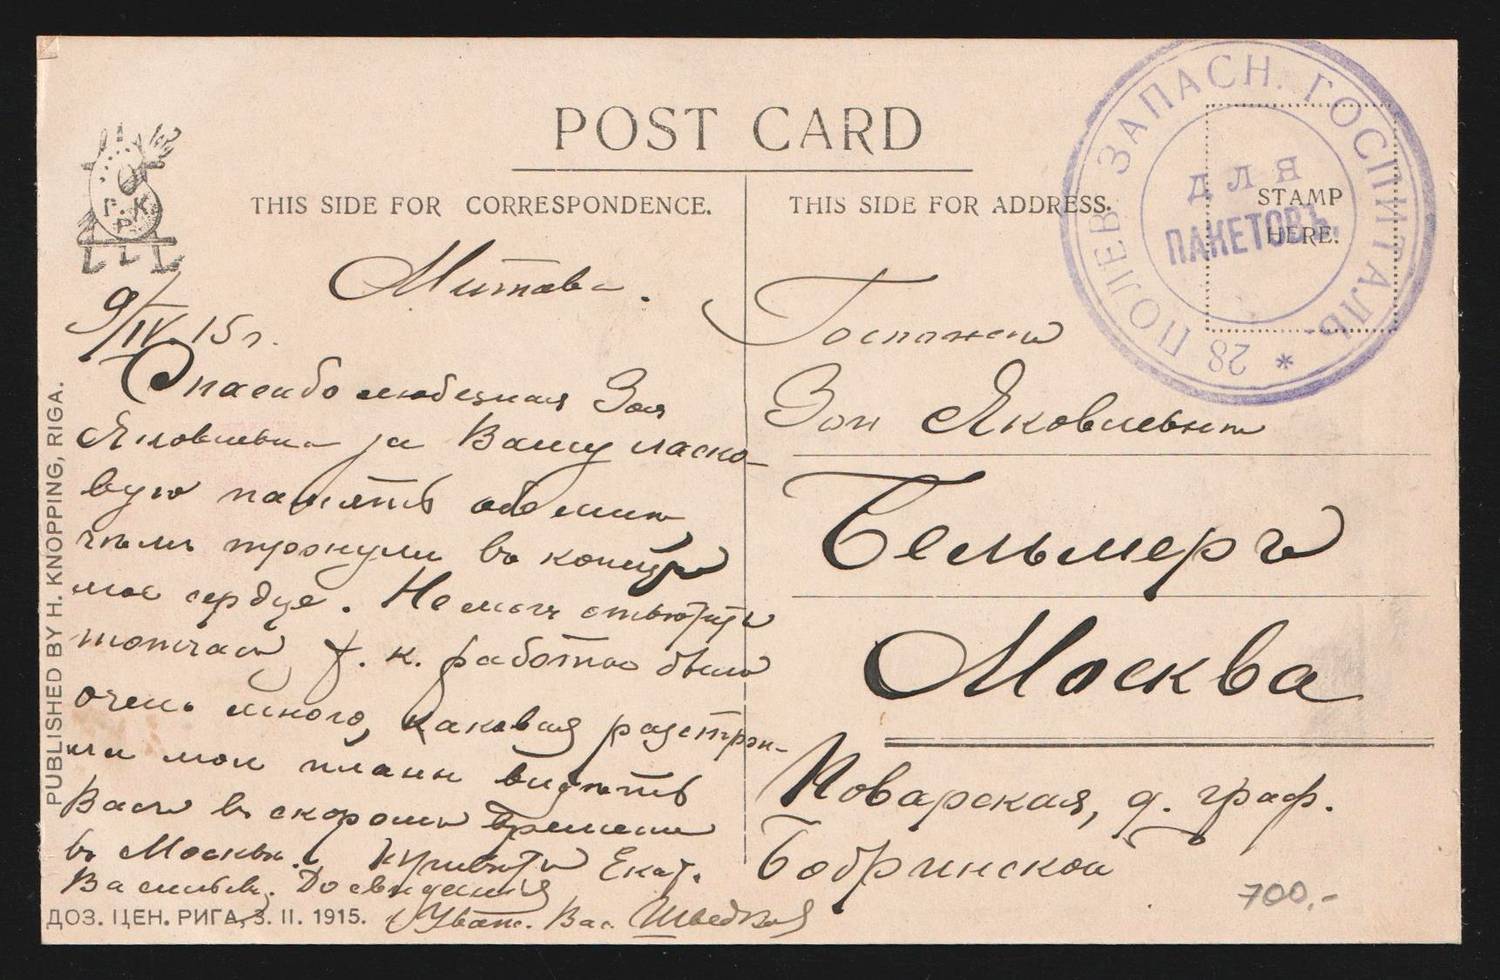 POST CARD
THIS SIDE FOR CORRESPONDENCE.
THIS SIDE FOR ADDRESS.
STAMP
HERE.
28 ПОЛЕВ. ЗАПАСН. ГОСПИТАЛЬ. *
для
ПАКЕТОВЪ.
Г. К.
Р
PUBLISHED BY H. KNOPPING, RIGA.
Митава.
9/IV. 15 г.
Спасибо любезная Зоя
Яковлевна за Вашу ласко-
вую память
тронули въ конецъ
мое сердце. Не могъ отвѣтить
тотчасъ, т. к. работы было
очень много, каковая разстрои-
ла мои планы видѣть
Васъ въ скоромъ времени
въ Москвѣ. Привѣтъ Екат.
Васильев. До свиданія
Уваж. Вас
ДОЗ. ЦЕН. РИГА, 3. II. 1915.
Госпожѣ
Зои Яковлевнѣ
Гельмеръ
Москва
Поварская, д. граф.
Бобринской
700,-